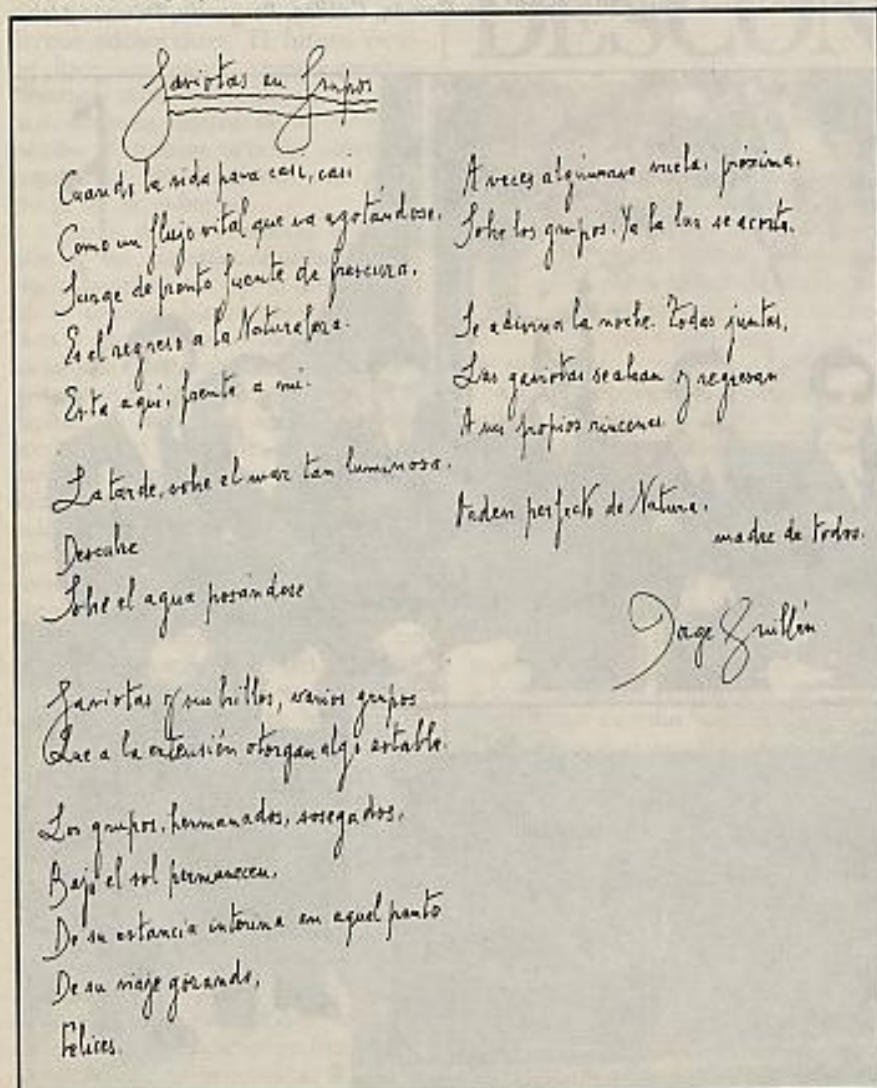 Gaviotas en grupos
Cuando la vida para casi, casi
Como un flujo vital que va agotándose,
Surge de pronto fuente de frescura.
Es el regreso a la Naturaleza.
Está aquí, frente a mí.
La tarde, sobre el mar tan luminoso,
Descubre
Sobre el agua posándose
Gaviotas y sus brillos, varios grupos
Que a la extensión otorgan algo estable.
Los grupos, hermanados, sosegados,
Bajo el sol permanecen,
De su estancia interina en aquel punto
De su viaje gozando,
Felices.
A veces algún ave vuela, próxima,
Sobre los grupos. Ya la luz se acorta.
Se adivina la noche. Todas juntas,
Las gaviotas se alzan y regresan
A sus propios rincones.
Orden perfecto de Natura,
madre de todos.
Jorge Guillén